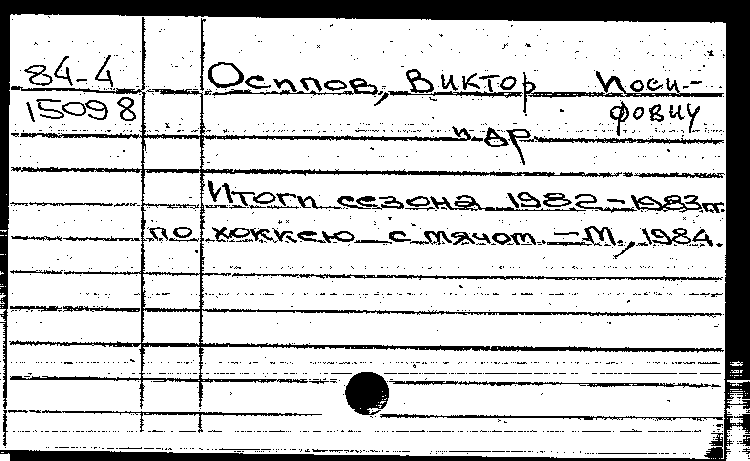 84-4 Осипов, Виктор Иоси-
15098 фович
и др.
Итоги сезона 1982-1983гг.
по хоккею с мячом. - М., 1984.